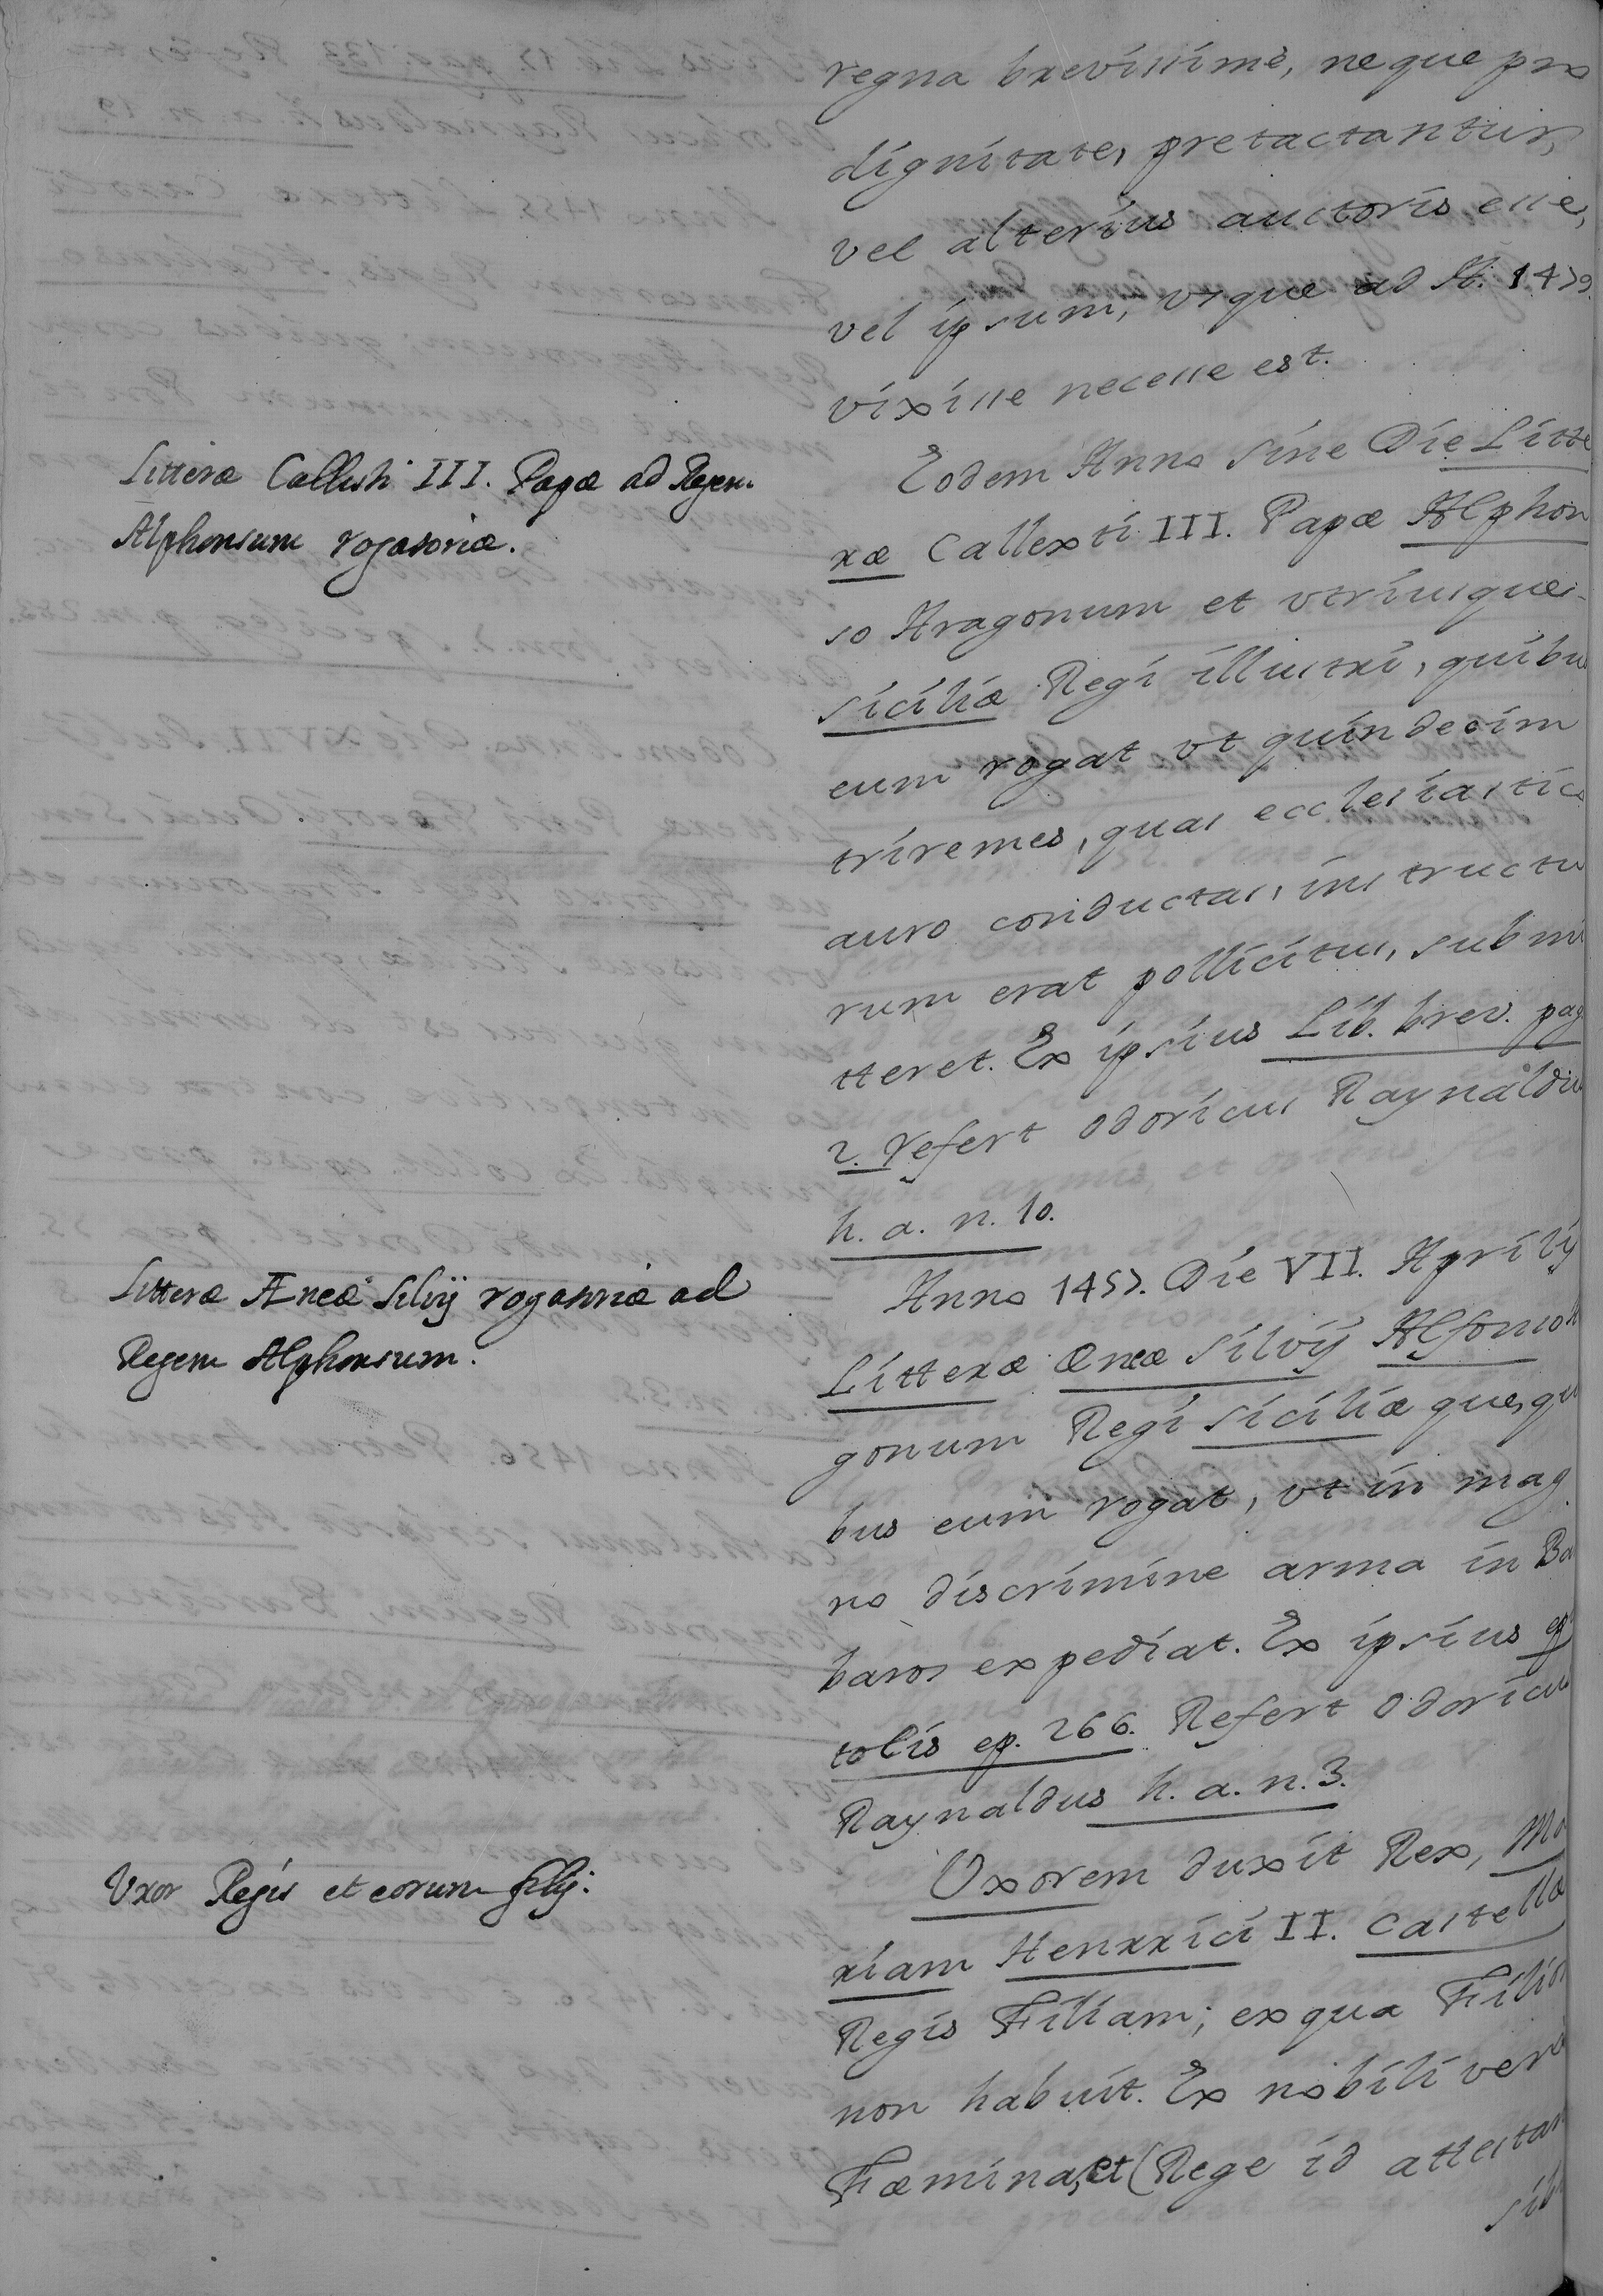 regna brevissimè, neque pro
dignitate, pretactantur,
vel alterius auctoris esse,
vel ipsum, vsque ad A. 1479.
vixisse necesse est.
Litteræ Callisti III. Papæ ad Regem
Alphonsum rogatoriæ.
Eodem Anno sine Die Litte
ræ Callexti III. Papæ Alphon
so Aragonum et vtriusque
Siciliæ Regi illustri, quibus
eum rogat vt quindecim
triremes, quas ecclesiastico
auro conductas, instructu
rum erat pollicitus, submi
tteret. Ex ipsius Lib. brev. pag
2. refert Odoricus Raynaldus
h. a. n. 10.
Litteræ Æneæ Silvij rogatoriæ ad
Regem Alphonsum.
Anno 1457. Die VII. Aprilij
Litteræ Æneæ Silvij Alfonso
gonum Regi Siciliæ que, qu
bus eum rogat, vt in mag
no discrimine arma in Ba
baros expediat. Ex ipsius
tolis ep. 266. Refert Odoricus
Raynaldus h. a. n. 3.
Vxor Regis et eorum filij.
Vxorem duxit Rex, Ma
riam Henrrici II. Castellæ
Regis Filiam; ex qua Filios
non habuit. Ex nobili vero
Fæmina, et (Rege id attestan
sibi